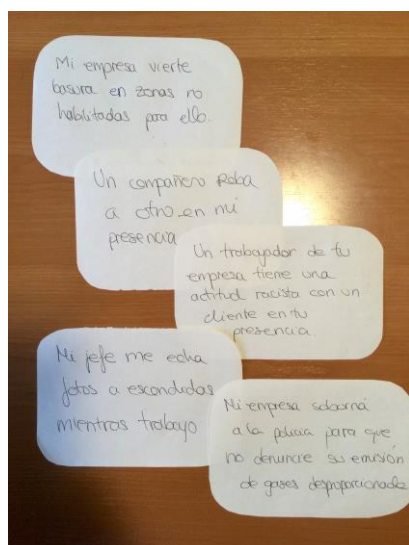 Mi empresa vierte
basura en zonas no
habilitadas para ello.
Un compañero roba
a otro en mi
presencia
Un trabajador de tu
empresa tiene una
actitud racista con un
cliente en tu
presencia.
Mi jefe me echa
fotos a escondidas
mientras trabajo
Mi empresa soborna
a la policia para que
no denuncie su emisión
de gases desproporcionada